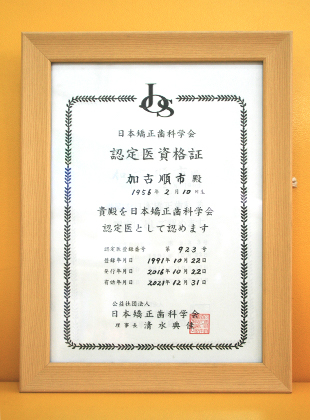 JOS
日本矯正歯科学会
認定医資格証
加古順市 殿
1956年 2月 10日生
貴殿を日本矯正歯科学会
認定医として認めます
認定医登録番号 第 923 号
登録年月日 1991年10月22日
発行年月日 2016年10月22日
有効年月日 2021年12月31日
公益社団法人
日本矯正歯科学会
理事長 清水典佳